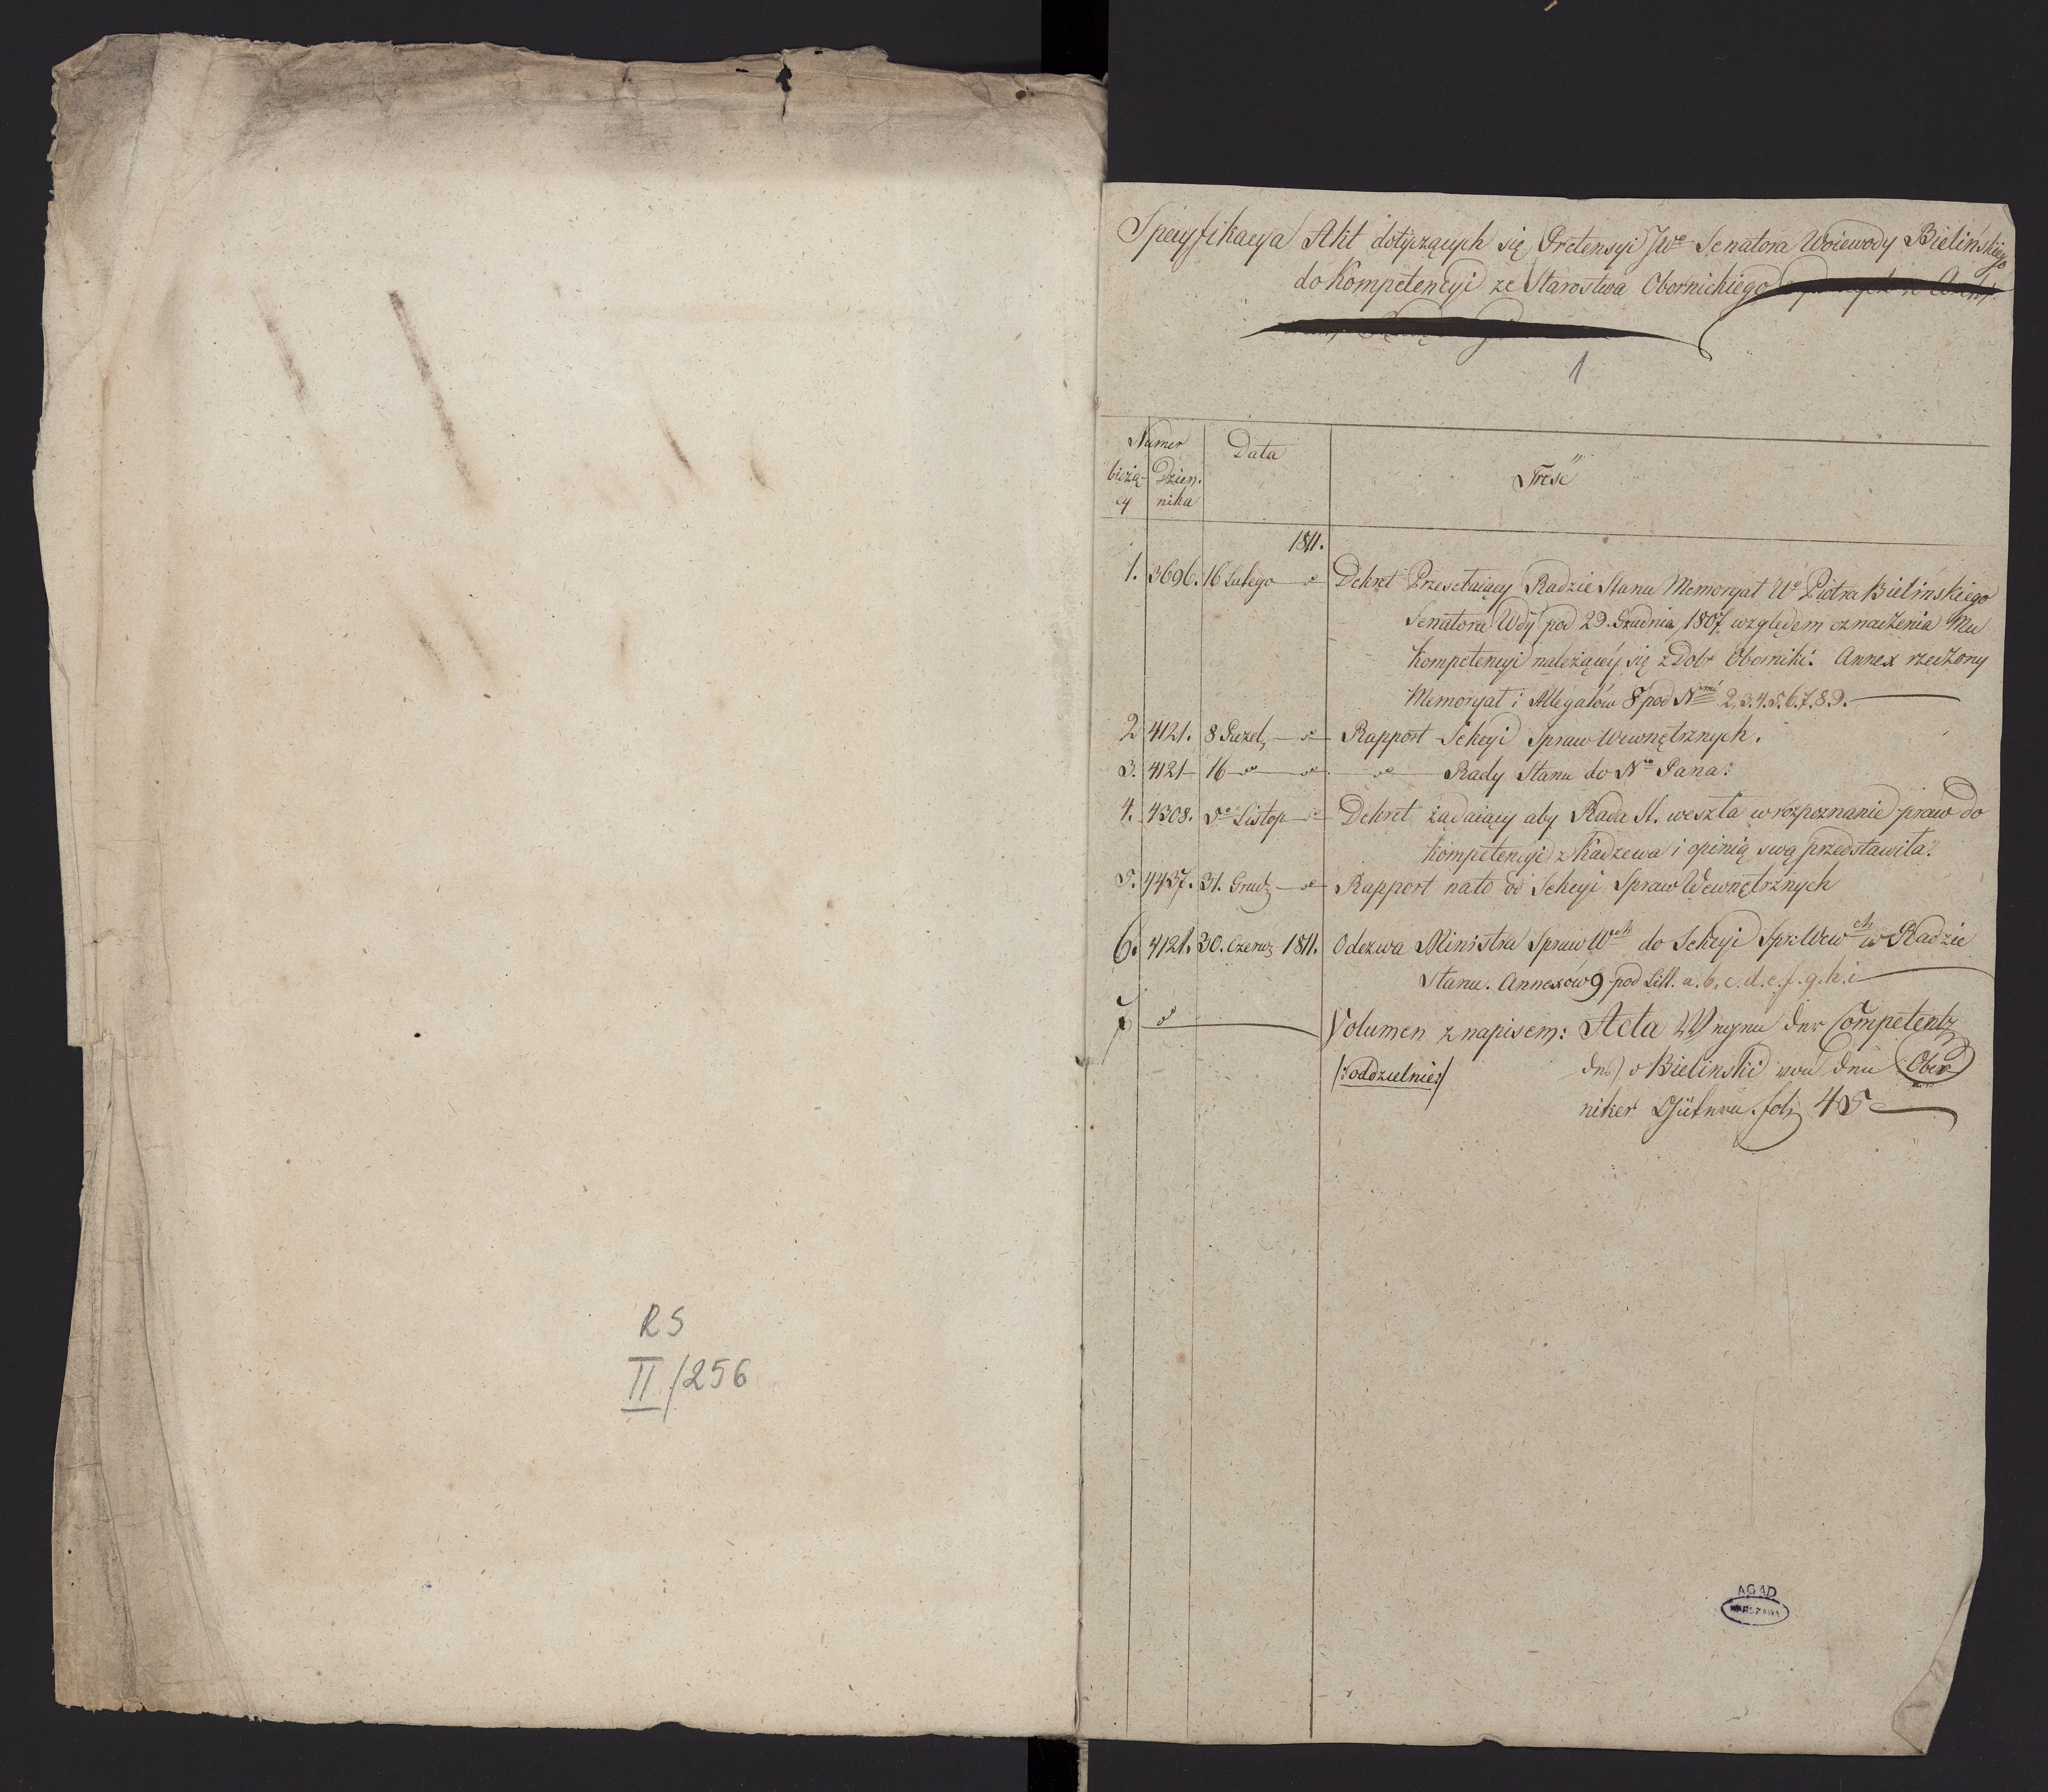 RS
II/256
Specyfikacya Akt dotyczących się Pretensyi JWo Senatora Woiewody Bielińskiego
do Kompetencyi ze Starostwa Obornickiego
1
Numer
Data
bieżą- Dzien.
Treść
cy nika
1811.
1. 3696. 16 Lutego — do — Dekret Przesełaiący Radzie Stanu Memoryał Wo Piotra Bielińskiego
Senatora Wdy pod 29. Grudnia 1807 względem oznaczenia Mu
Kompetencyi należącey się z Dobr Oborniki. Annex rzeczony
Memoryał i Allegatów 8 pod Nrmi 2.3.4.5.6.7.8.9.
2 4121. 8 Paźd. — do — Rapport Sekcyi Spraw Wewnętrznych.
3. 4121 — 16 do — do — do — Rady Stanu do No Pana.
4. 4308. 5o Listop — do — Dekret żądaiący aby Rada St. weszła w rozpoznanie praw do
Kompetencyi z Kadzewa i opinią swą przedstawiła.
5. 4437. 31. Grud — do — Rapport na to od Sekcyi Spraw Wewnętrznych
6. 4121. 30. Czerw 1811. Odezwa Ministra Spraw Wch do Sekcyi Spr: Wewch w Radzie
Stanu. Annexów 9 pod Litt. a. b. c. d. e. f. g. h. i
7 do — Volumen z napisem: Acta Wegen der Competentz
/:oddzielnie:/ des v Bielinski von den Obor
niker Gütern fol. 45
AGAD
WARSZAWA